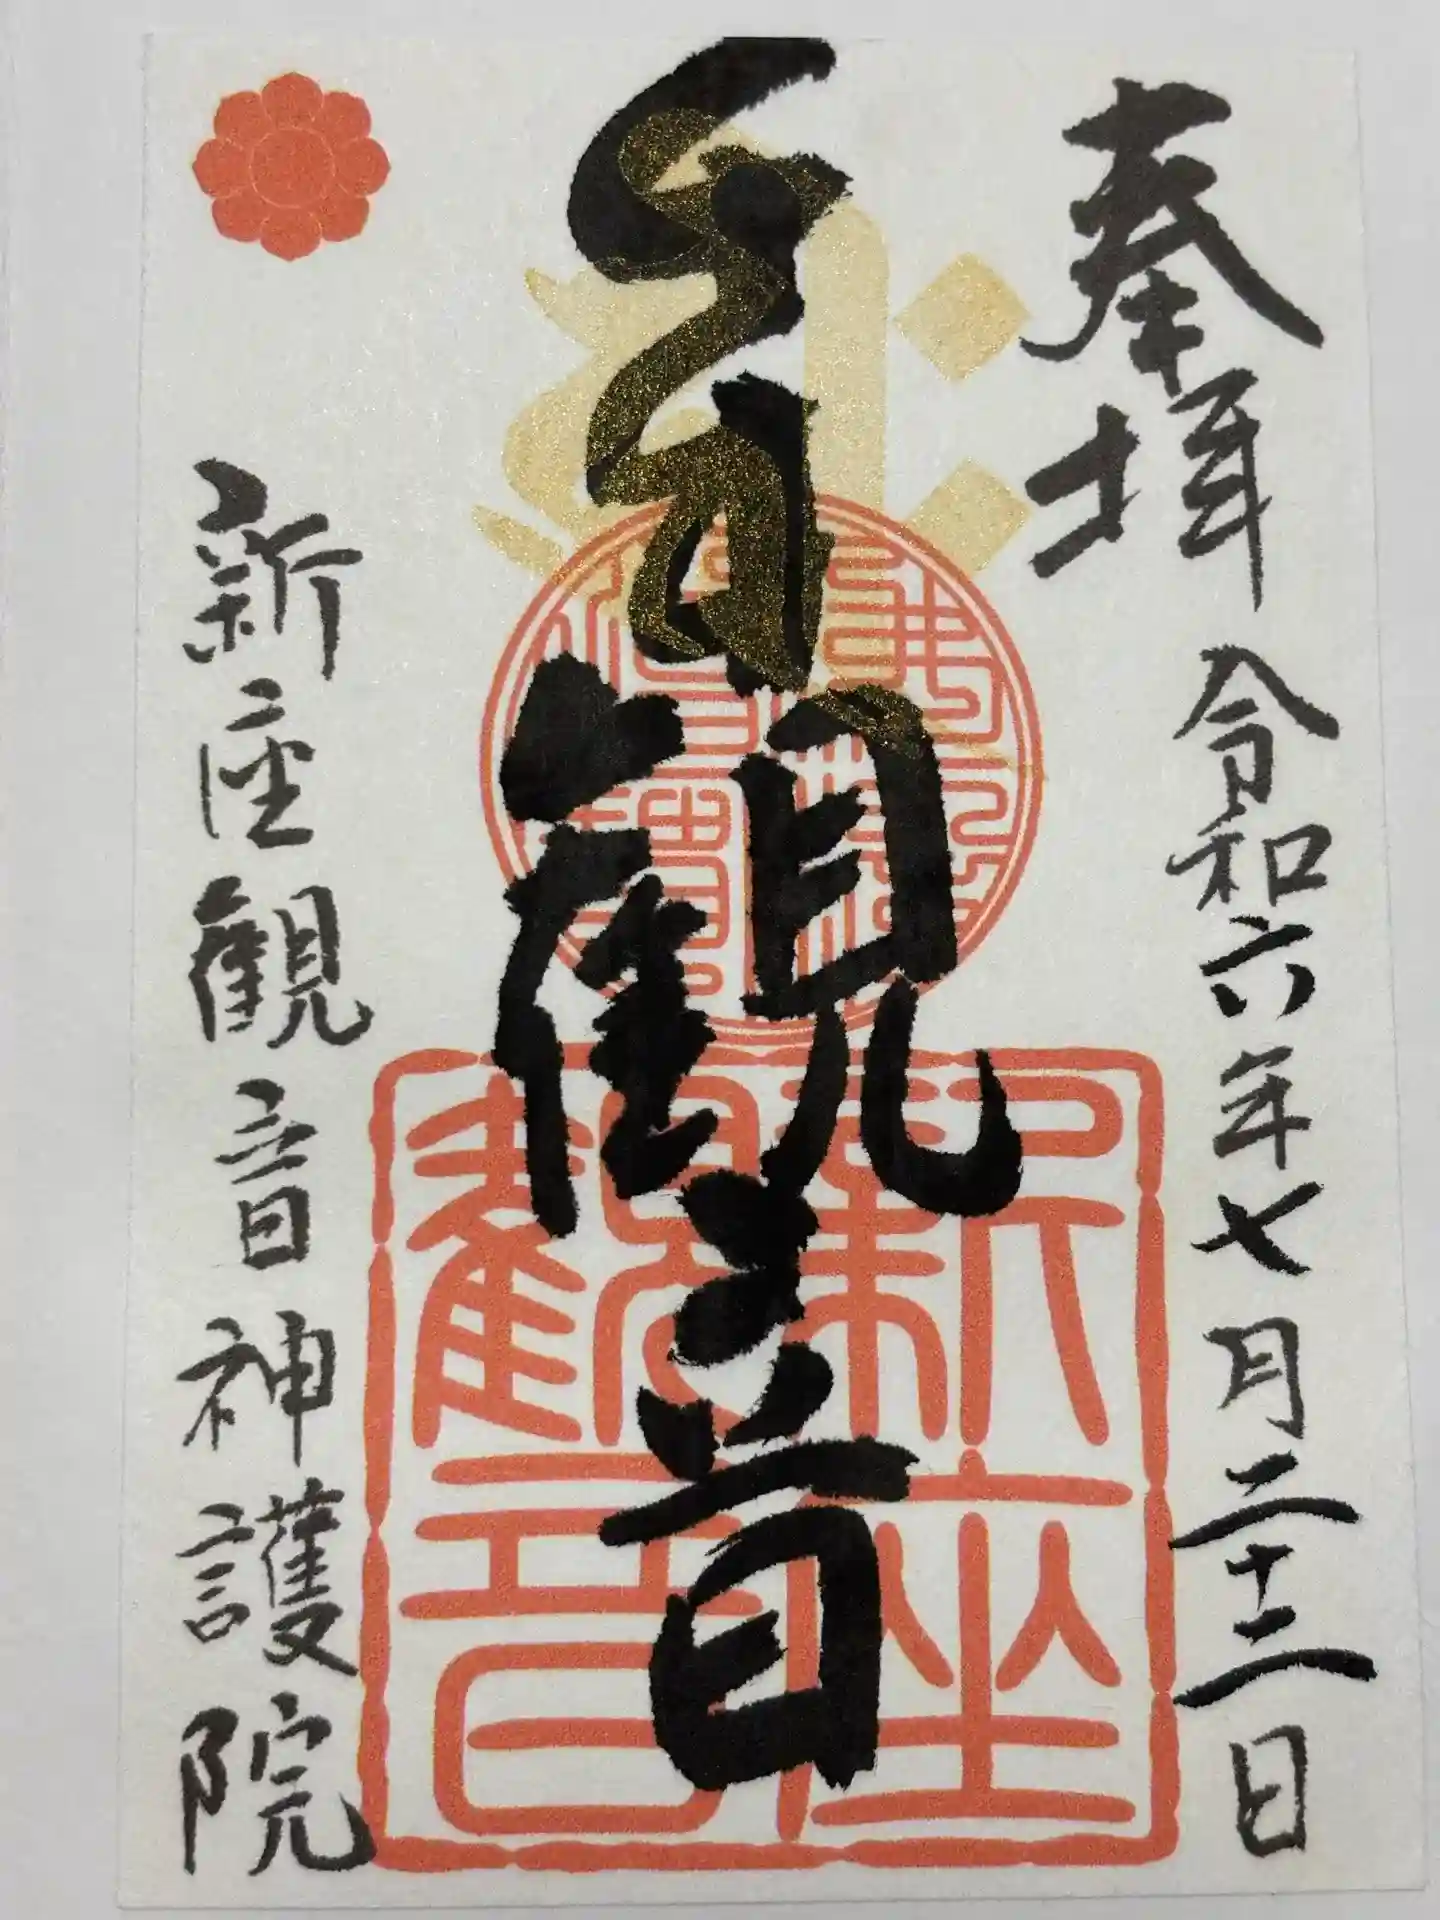 奉拝 令和六年七月二十二日
観音
新座観音神護院
新座
觀音